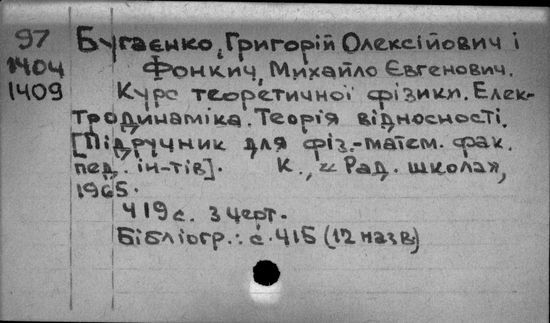 97 Бугаєнко, Григорій Олексійович і
1404 Фонкич, Михайло Євгенович.
1409 Курс теоретичної фізики. Елек-
тродинаміка. Теорія відносності.
[Підручник для фіз.-матем. фак.
пед. ін-тів]. К., "Рад. школа",
1965.
419 с. З черт.
Бібліогр.: с. 415 (12 назв)